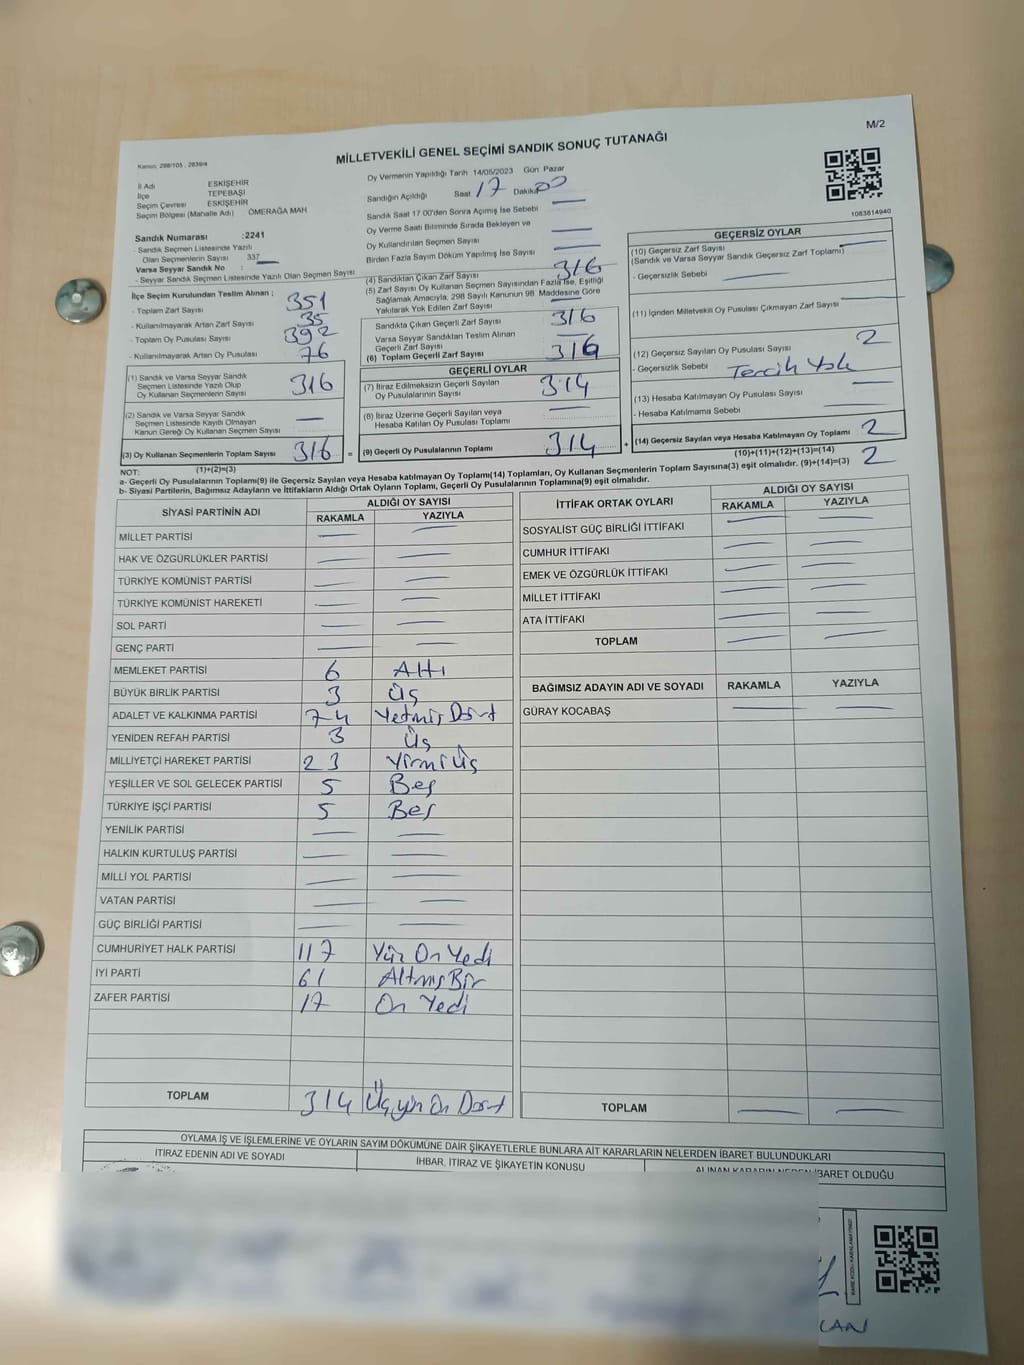 M/2
Kanun: 298/105 , 2839/4
MİLLETVEKİLİ GENEL SEÇİMİ SANDIK SONUÇ TUTANAĞI
İl Adı ESKİŞEHİR
İlçe TEPEBAŞI
Seçim Çevresi ESKİŞEHİR
Seçim Bölgesi (Mahalle Adı) ÖMERAĞA MAH
Sandık Numarası :2241
- Sandık Seçmen Listesinde Yazılı
Olan Seçmenlerin Sayısı 337
Varsa Seyyar Sandık No :
- Seyyar Sandık Seçmen Listesinde Yazılı Olan Seçmen Sayısı
Oy Vermenin Yapıldığı Tarih 14/05/2023 Gün Pazar
Sandığın Açıldığı Saat 17 Dakika 00
Sandık Saat 17.00'den Sonra Açımış İse Sebebi
Oy Verme Saati Bitiminde Sırada Bekleyen ve
Oy Kullandırılan Seçmen Sayısı
Birden Fazla Sayım Döküm Yapılmış İse Sayısı
1083814940
İlçe Seçim Kurulundan Teslim Alınan ;
- Toplam Zarf Sayısı 351
- Kullanılmayarak Artan Zarf Sayısı 35
- Toplam Oy Pusulası Sayısı 392
- Kullanılmayarak Artan Oy Pusulası 76
(1) Sandık ve Varsa Seyyar Sandık
Seçmen Listesinde Yazılı Olup
Oy Kullanan Seçmenlerin Sayısı 316
(2) Sandık ve Varsa Seyyar Sandık
Seçmen Listesinde Kayıtlı Olmayan
Kanun Gereği Oy Kullanan Seçmen Sayısı
(3) Oy Kullanan Seçmenlerin Toplam Sayısı 316
(1)+(2)=(3)
(4) Sandıktan Çıkan Zarf Sayısı 316
(5) Zarf Sayısı Oy Kullanan Seçmen Sayısından Fazla İse, Eşitliği
Sağlamak Amacıyla, 298 Sayılı Kanunun 98. Maddesine Göre
Yakılarak Yok Edilen Zarf Sayısı
Sandıkta Çıkan Geçerli Zarf Sayısı 316
Varsa Seyyar Sandıktan Teslim Alınan
Geçerli Zarf Sayısı
(6) Toplam Geçerli Zarf Sayısı 316
GEÇERLİ OYLAR
(7) İtiraz Edilmeksizin Geçerli Sayılan
Oy Pusulalarının Sayısı 314
(8) İtiraz Üzerine Geçerli Sayılan veya
Hesaba Katılan Oy Pusulası Toplamı
= (9) Geçerli Oy Pusulalarının Toplamı 314 +
GEÇERSİZ OYLAR
(10) Geçersiz Zarf Sayısı
(Sandık ve Varsa Seyyar Sandık Geçersiz Zarf Toplamı)
- Geçersizlik Sebebi
(11) İçinden Milletvekili Oy Pusulası Çıkmayan Zarf Sayısı
(12) Geçersiz Sayılan Oy Pusulası Sayısı 2
- Geçersizlik Sebebi Tercih Yok
(13) Hesaba Katılmayan Oy Pusulası Sayısı
- Hesaba Katılmama Sebebi
(14) Geçersiz Sayılan veya Hesaba Katılmayan Oy Toplamı 2
(10)+(11)+(12)+(13)=(14)
NOT:
a- Geçerli Oy Pusulalarının Toplamı(9) ile Geçersiz Sayılan veya Hesaba katılmayan Oy Toplamı(14) Toplamları, Oy Kullanan Seçmenlerin Toplam Sayısına(3) eşit olmalıdır. (9)+(14)=(3) 2
b- Siyasi Partilerin, Bağımsız Adayların ve İttifakların Aldığı Ortak Oyların Toplamı, Geçerli Oy Pusulalarının Toplamına(9) eşit olmalıdır.
SİYASİ PARTİNİN ADI ALDIĞI OY SAYISI
RAKAMLA YAZIYLA
MİLLET PARTİSİ
HAK VE ÖZGÜRLÜKLER PARTİSİ
TÜRKİYE KOMÜNİST PARTİSİ
TÜRKİYE KOMÜNİST HAREKETİ
SOL PARTİ
GENÇ PARTİ
MEMLEKET PARTİSİ 6 Altı
BÜYÜK BİRLİK PARTİSİ 3 Üç
ADALET VE KALKINMA PARTİSİ 74 Yetmiş Dört
YENİDEN REFAH PARTİSİ 3 Üç
MİLLİYETÇİ HAREKET PARTİSİ 23 Yirmi Üç
YEŞİLLER VE SOL GELECEK PARTİSİ 5 Beş
TÜRKİYE İŞÇİ PARTİSİ 5 Beş
YENİLİK PARTİSİ
HALKIN KURTULUŞ PARTİSİ
MİLLİ YOL PARTİSİ
VATAN PARTİSİ
GÜÇ BİRLİĞİ PARTİSİ
CUMHURİYET HALK PARTİSİ 117 Yüz On Yedi
İYİ PARTİ 61 Altmış Bir
ZAFER PARTİSİ 17 On Yedi
TOPLAM 314 Üç yüz On Dört
İTTİFAK ORTAK OYLARI ALDIĞI OY SAYISI
RAKAMLA YAZIYLA
SOSYALİST GÜÇ BİRLİĞİ İTTİFAKI
CUMHUR İTTİFAKI
EMEK VE ÖZGÜRLÜK İTTİFAKI
MİLLET İTTİFAKI
ATA İTTİFAKI
TOPLAM
BAĞIMSIZ ADAYIN ADI VE SOYADI RAKAMLA YAZIYLA
GÜRAY KOCABAŞ
TOPLAM
OYLAMA İŞ VE İŞLEMLERİNE VE OYLARIN SAYIM DÖKÜMÜNE DAİR ŞİKAYETLERLE BUNLARA AİT KARARLARIN NELERDEN İBARET BULUNDUKLARI
İTİRAZ EDENİN ADI VE SOYADI İHBAR, İTİRAZ VE ŞİKAYETİN KONUSU ALINAN KARARIN NEDEN İBARET OLDUĞU